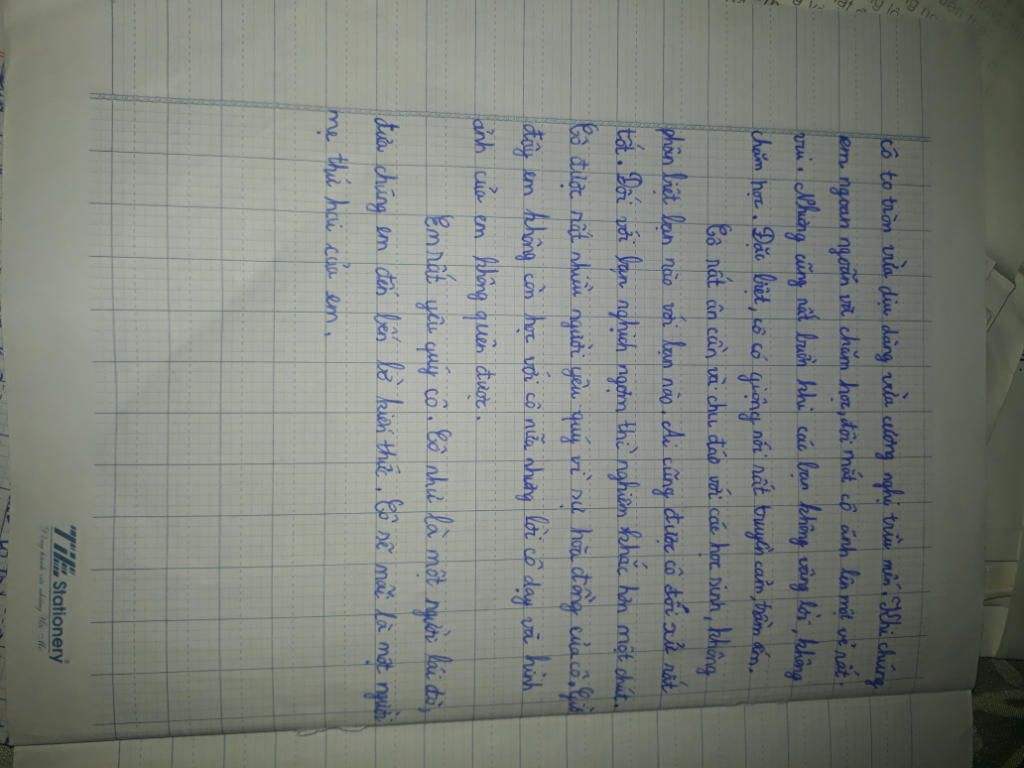 cô to tròn vừa dịu dàng vừa cương nghị trìu mến. Khi chúng
em ngoan ngoãn và chăm học, đôi mắt cô ánh lên một vẻ rất
vui. Nhưng cũng rất buồn khi các bạn không vâng lời, không
chăm học. Đặc biệt, cô có giọng nói rất truyền cảm, trầm ấm.
Cô rất ân cần và chu đáo với các học sinh, không
phân biệt bạn nào với bạn nào. Ai cũng được cô đối xử rất
tốt. Đối với bạn nghịch ngợm thì nghiêm khắc hơn một chút.
Cô được rất nhiều người yêu quý vì sự hòa đồng của cô. Giờ
đây em không còn học với cô nữa nhưng lời cô dạy và hình
ảnh của em không quên được.
Em rất yêu quý cô. Cô như là một người lái đò,
đưa chúng em đến bến bờ kiến thức. Cô sẽ mãi là một người
mẹ thứ hai của em.
Stationery